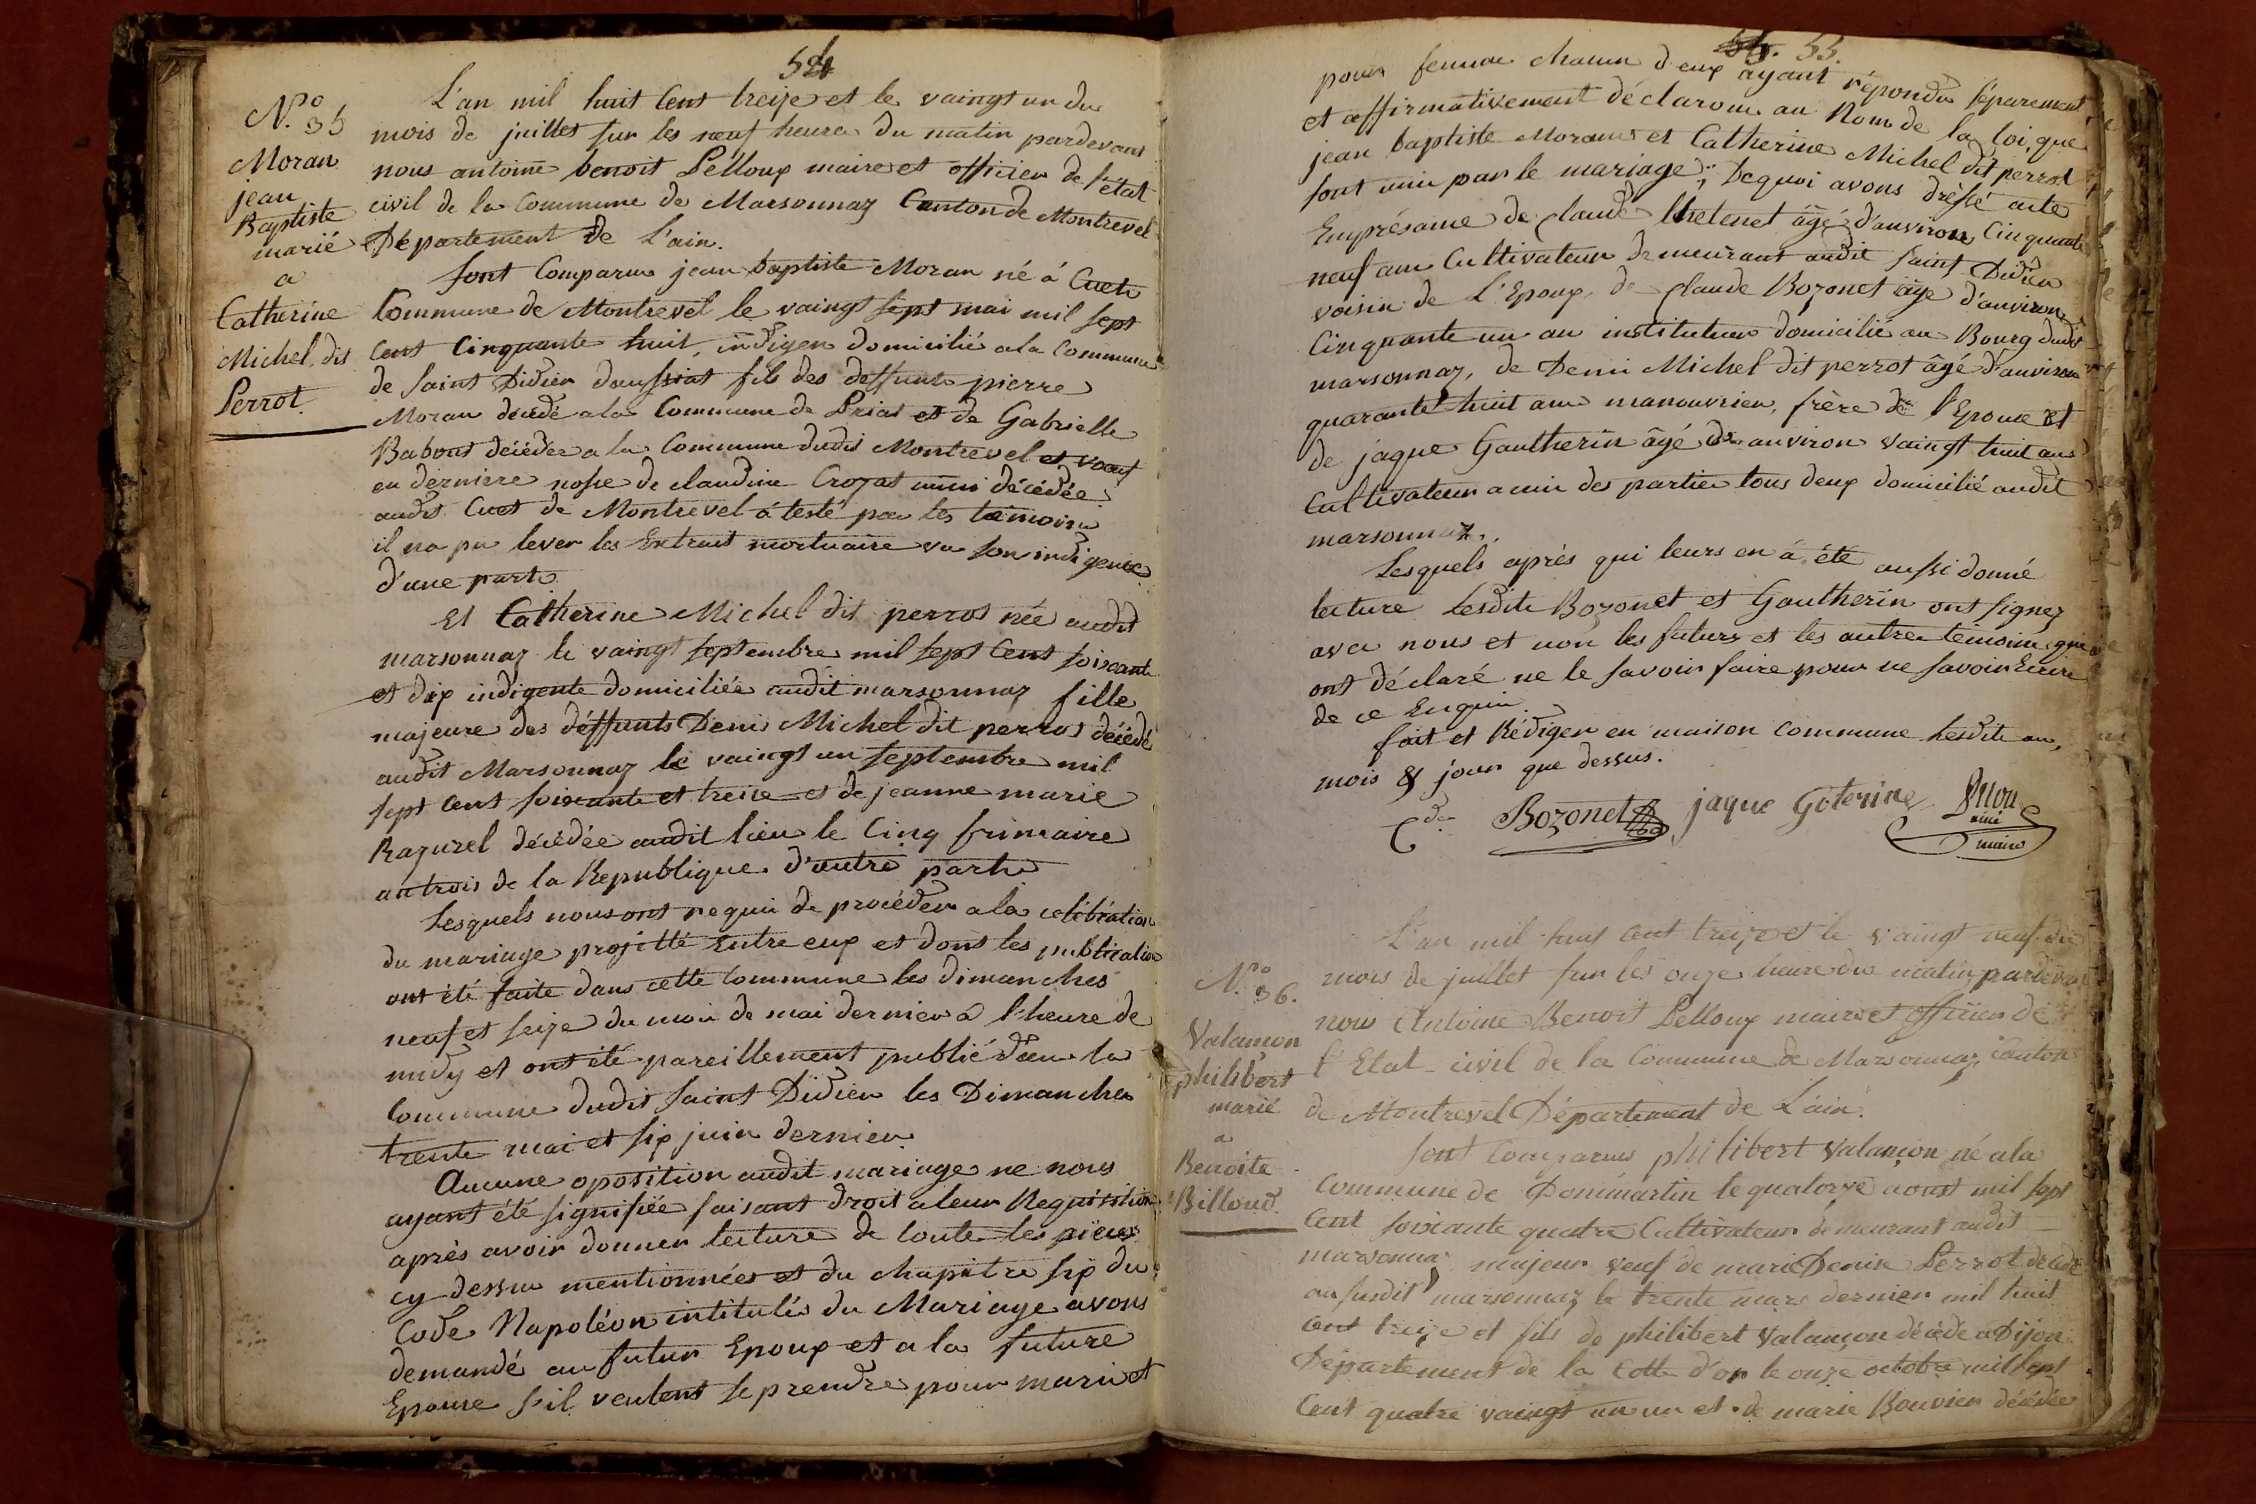 54
N.o 35
Moran
jean
Baptiste
marié
a
Catherine
Michel dit
Perrot.
L'an mil huit Cent treize et le vaingt un du
mois de juillet sur les neuf heure du matin pardevant
nous antoine benoit Pelloux maire et officier de l'état
civil de la Commune de Marsonnaz Canton de Montrevel
Département de L'ain.
sont Comparus jean baptiste Moran né á Cuet
Commune de Montrevel le vaingt sept mai mil sept
Cent Cinquante huit, indigen domicilié a la Commune
de saint Didier daussiat fils des deffunts pierre
Moran décédé a la Commune de Prias et de Gabrielle
Babout décédée a la Commune dudit Montrevel et vœuf
en derniere nosse de claudine Crozat aussi décédée
audit Cuet de Montrevel á testé par les temoins
il na pu lever les Extrait mortuaire vu son indigence
d'une part.
Et Catherine Michel dit perrot née audit
marsonnaz le vaingt septembre mil sept Cent soixante
et dix indigente domiciliée audit marsonnaz fille
majeure des déffunts Denis Michel dit perrot décédé
audit Marsonnaz le vaingt un septembre mil
sept Cent soixante et treize et de jeanne marie
Razurel décédée audit lieu le Cinq frimaire
an trois de la Republique d'autre part.
Lesquels nous ont requis de procéder a la célébration
du mariage projetté Entre eux et dont les publication
ont été faite dans cette Commune les dimanches
neuf et seize du mois de mai dernier a l'heure de
midy et ont été pareillement publié dan la
Commune dudit saint Didier les Dimanches
trente mai et six juin dernier.
Aucune oposition audit mariage ne nous
ayant été signifiée faisant droit a leur Requisition
après avoir donner lecture de toute les pièces
cy dessus mentionnées et du chapitre six du
Code Napoléon intitulés du Mariage avons
demandé au futur Epoux et a la future
Epouse s'il veulent se prendre pour mari et
55.
pour femme chacun d'eux ayant répondu séparement,
et affirmativement déclarons au Nom de la loi, que
jean baptiste Moran et Catherine Michel dit perrot
sont unis par le mariage; Dequoi avons dréssé acte
Enprésance de claude Chetenet âgé d'anviron Cinquante
neuf ans Cultivateur demeurant audit saint Didier
voisin de L'Epoux, de claude Bozonet âge d'anviron
Cinquante un an instituteur domicilié au Bourg dudit
marsonnaz, de Denis Michel dit perrot âgé d'anviron
quarante huit ans manouvrier, frère de l'Epouse et
de jâque Gautherin âgé de anviron vaingt huit ans
Cultivateur amis des parties tous deux domicilié audit
marsonnaz.
Lesquels après qui leurs en á été aussi donné
lecture lesdits Bozonet et Gautherin ont signez
avec nous et non les futurs et les autres témoins que
ont déclaré ne le savoir faire pour ne savoir Ecrire
de ce Enquis.
fait et Rédiger en maison Commune lesdits an,
mois & jour que dessus.
Cde Bozonet jaque Goterine
maire
N.o 36.
Valançon
philibert
marié
a
Benoite
Billoud.
L'an mil huit Cent treize et le vaingt neuf du
mois de juillet sur les onze heure du matin, pardevant
nous Antoine Benoit Pelloux maire et officier de
l'Etat civil de la Commune de Marsonnaz, Canton
de Montrevel Département de L'ain.
sont Comparus philibert Valançon né a la
Commune de Dommartin le quatorze aoust mil sept
Cent soixante quatre Cultivateur demeurant audit
marsonnaz majeur veuf de marie Denise Perrot décédé
au susdit marsonnaz le trente mars dernier mil huit
Cent treize et fils de philibert Valançon décédé a Dijon
Département de la Cotte d'or le onze octobre mil sept
Cent quatre vaingt un et de marie Bouvier décédée